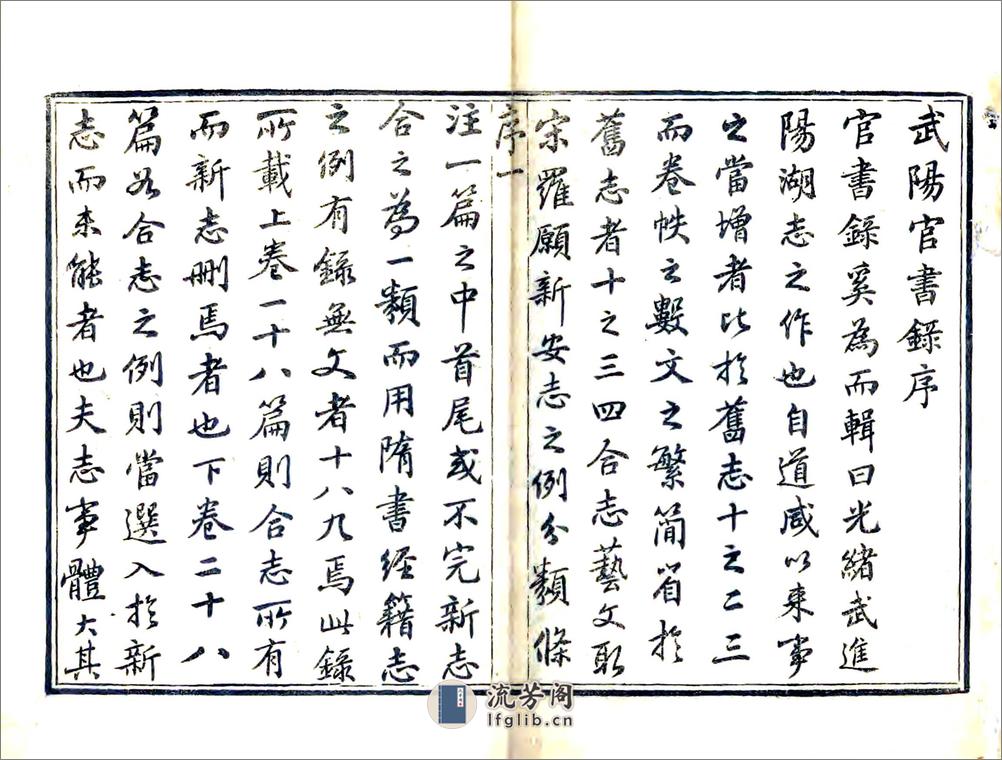 武陽官書錄序
官書錄奚為而輯曰光緒武進
陽湖志之作也自道咸以來事
之當增者比於舊志十之二三
而卷帙之數文之繁簡省於
舊志者十之三四合志藝文取
宋羅願新安志之例分類條
序一
注一篇之中首尾或不完新志
合之為一類而用隋書經籍志
之例有錄無文者十八九焉此錄
所載上卷一十八篇則合志所有
而新志刪焉者也下卷二十八
篇如合志之例則當選入於新
志而未能者也夫志事體大其
流芳阁
lfglib.cn